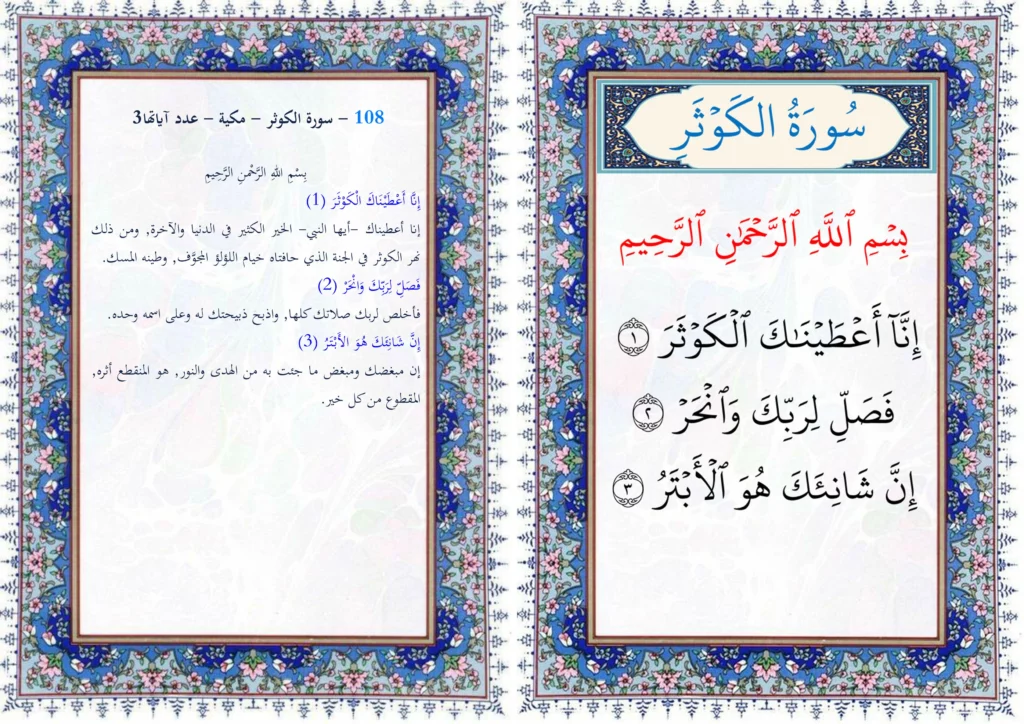 سُورَةُ الكَوْثَرِ
بِسْمِ ٱللَّهِ ٱلرَّحْمَٰنِ ٱلرَّحِيمِ
إِنَّآ أَعْطَيْنَٰكَ ٱلْكَوْثَرَ ١
فَصَلِّ لِرَبِّكَ وَٱنْحَرْ ٢
إِنَّ شَانِئَكَ هُوَ ٱلْأَبْتَرُ ٣
108 – سورة الكوثر – مكية – عدد آياتها3
بِسْمِ اللهِ الرَّحْمنِ الرَّحِيمِ
إِنَّا أَعْطَيْنَاكَ الْكَوْثَرَ (1)
إنا أعطيناك –أيها النبي– الخير الكثير في الدنيا والآخرة, ومن ذلك
نهر الكوثر في الجنة الذي حافتاه خيام اللؤلؤ المجوَّف, وطينه المسك.
فَصَلِّ لِرَبِّكَ وَانْحَرْ (2)
فأخلص لربك صلاتك كلها, واذبح ذبيحتك له وعلى اسمه وحده.
إِنَّ شَانِئَكَ هُوَ الأَبْتَرُ (3)
إن مبغضك ومبغض ما جئت به من الهدى والنور, هو المنقطع أثره,
المقطوع من كل خير.